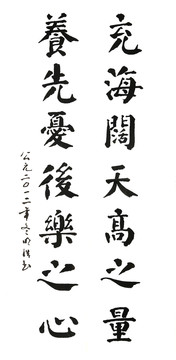 充海闊天高之量
養先憂後樂之心
公元二〇一二年冬